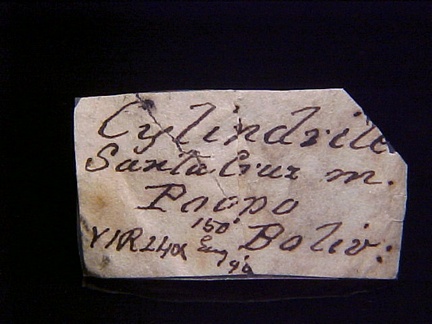 Cylindrite
Santa Cruz m.
Poopo
150
Y1R24a Boliv: